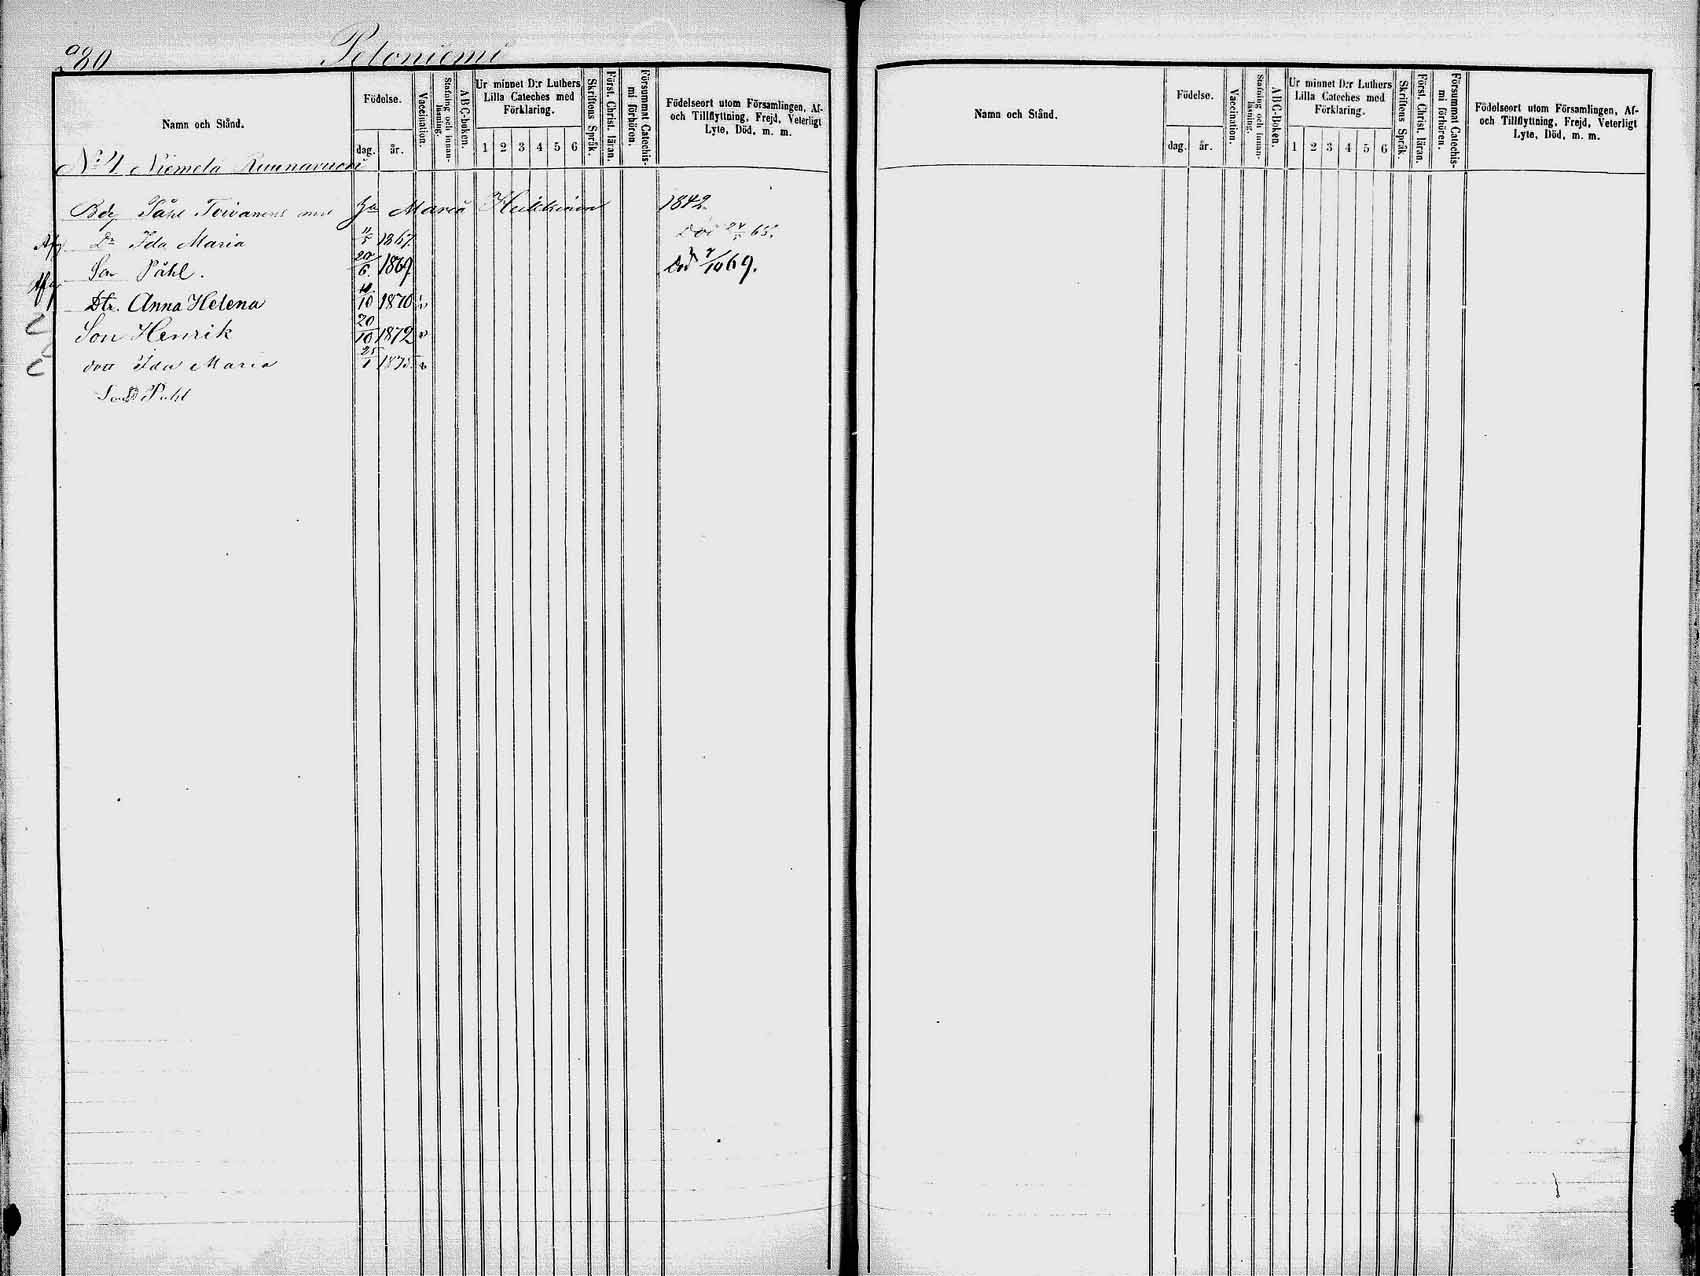 280 Peloniemi
Namn och Stånd.
Födelse.
dag. år.
Vaccination.
Stafning och innan-läsning.
ABC-boken.
Ur minnet D:r Luthers
Lilla Cateches med
Förklaring.
1 2 3 4 5 6
Skriftens Språk.
Först. Christ. läran.
Försummat Catechis-
mi förhören.
Födelseort utom Församlingen, Af-
och Tillflyttning, Frejd, Veterligt
Lyte, Död, m. m.
No 4 Niemelä Ruunavuori
Påhl Toivanens Maria Heikkinen 1842
Afg. Dr Ida Maria 1867. Död
Afg Son Påhl. 20/6. 1869 Död 7/10 69.
Dtr. Anna Helena 10/10 1870 v
Son Henrik 20/10 1872 v
dotr Ida Maria 25/1 1875 v
Son Påhl
Namn och Stånd.
Födelse.
dag. år.
Vaccination.
Stafning och innan-läsning.
ABC-Boken.
Ur minnet D:r Luthers
Lilla Cateches med
Förklaring.
1 2 3 4 5 6
Skriftens Språk.
Först. Christ. läran.
Försummat Catechis-
mi förhören.
Födelseort utom Församlingen, Af-
och Tillflyttning, Frejd, Veterligt
Lyte, Död, m. m.